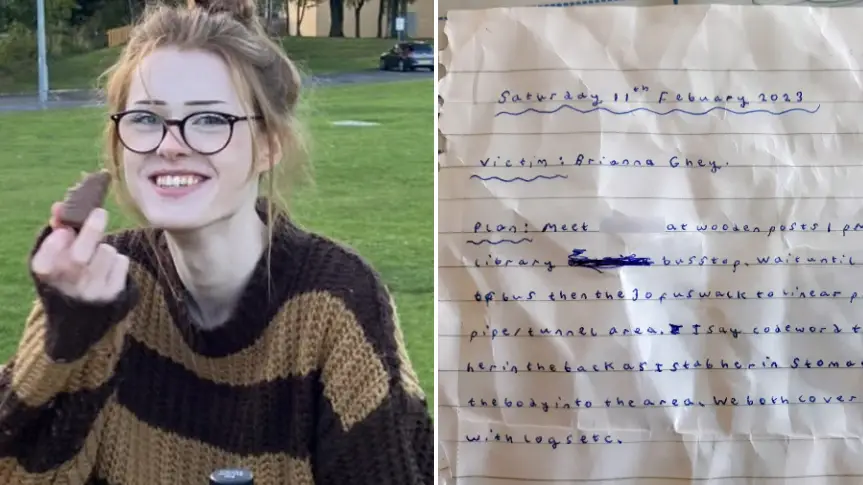 Saturday 11th Febuary 2023
Victim: Brianna Ghey.
Plan: Meet at wooden posts 1 pm
library bus stop. Wait until
bus then the 3 of us walk to linear p
pipe/tunnel area. I say code word t
her in the back as I stab her in Stoma
the body into the area. We both cover
with logs etc.